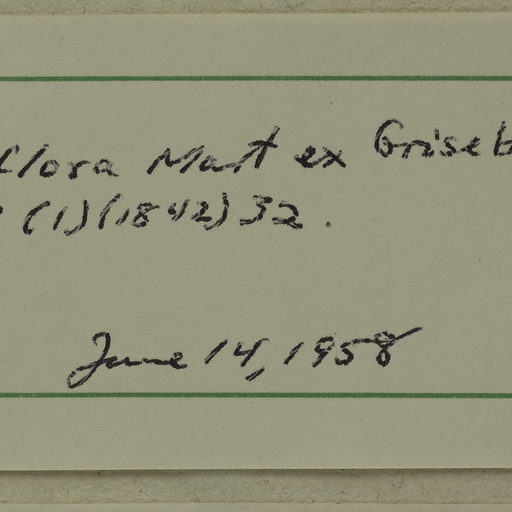 flora Mart ex Griseb
(1)(1842) 32.
June 14, 1958